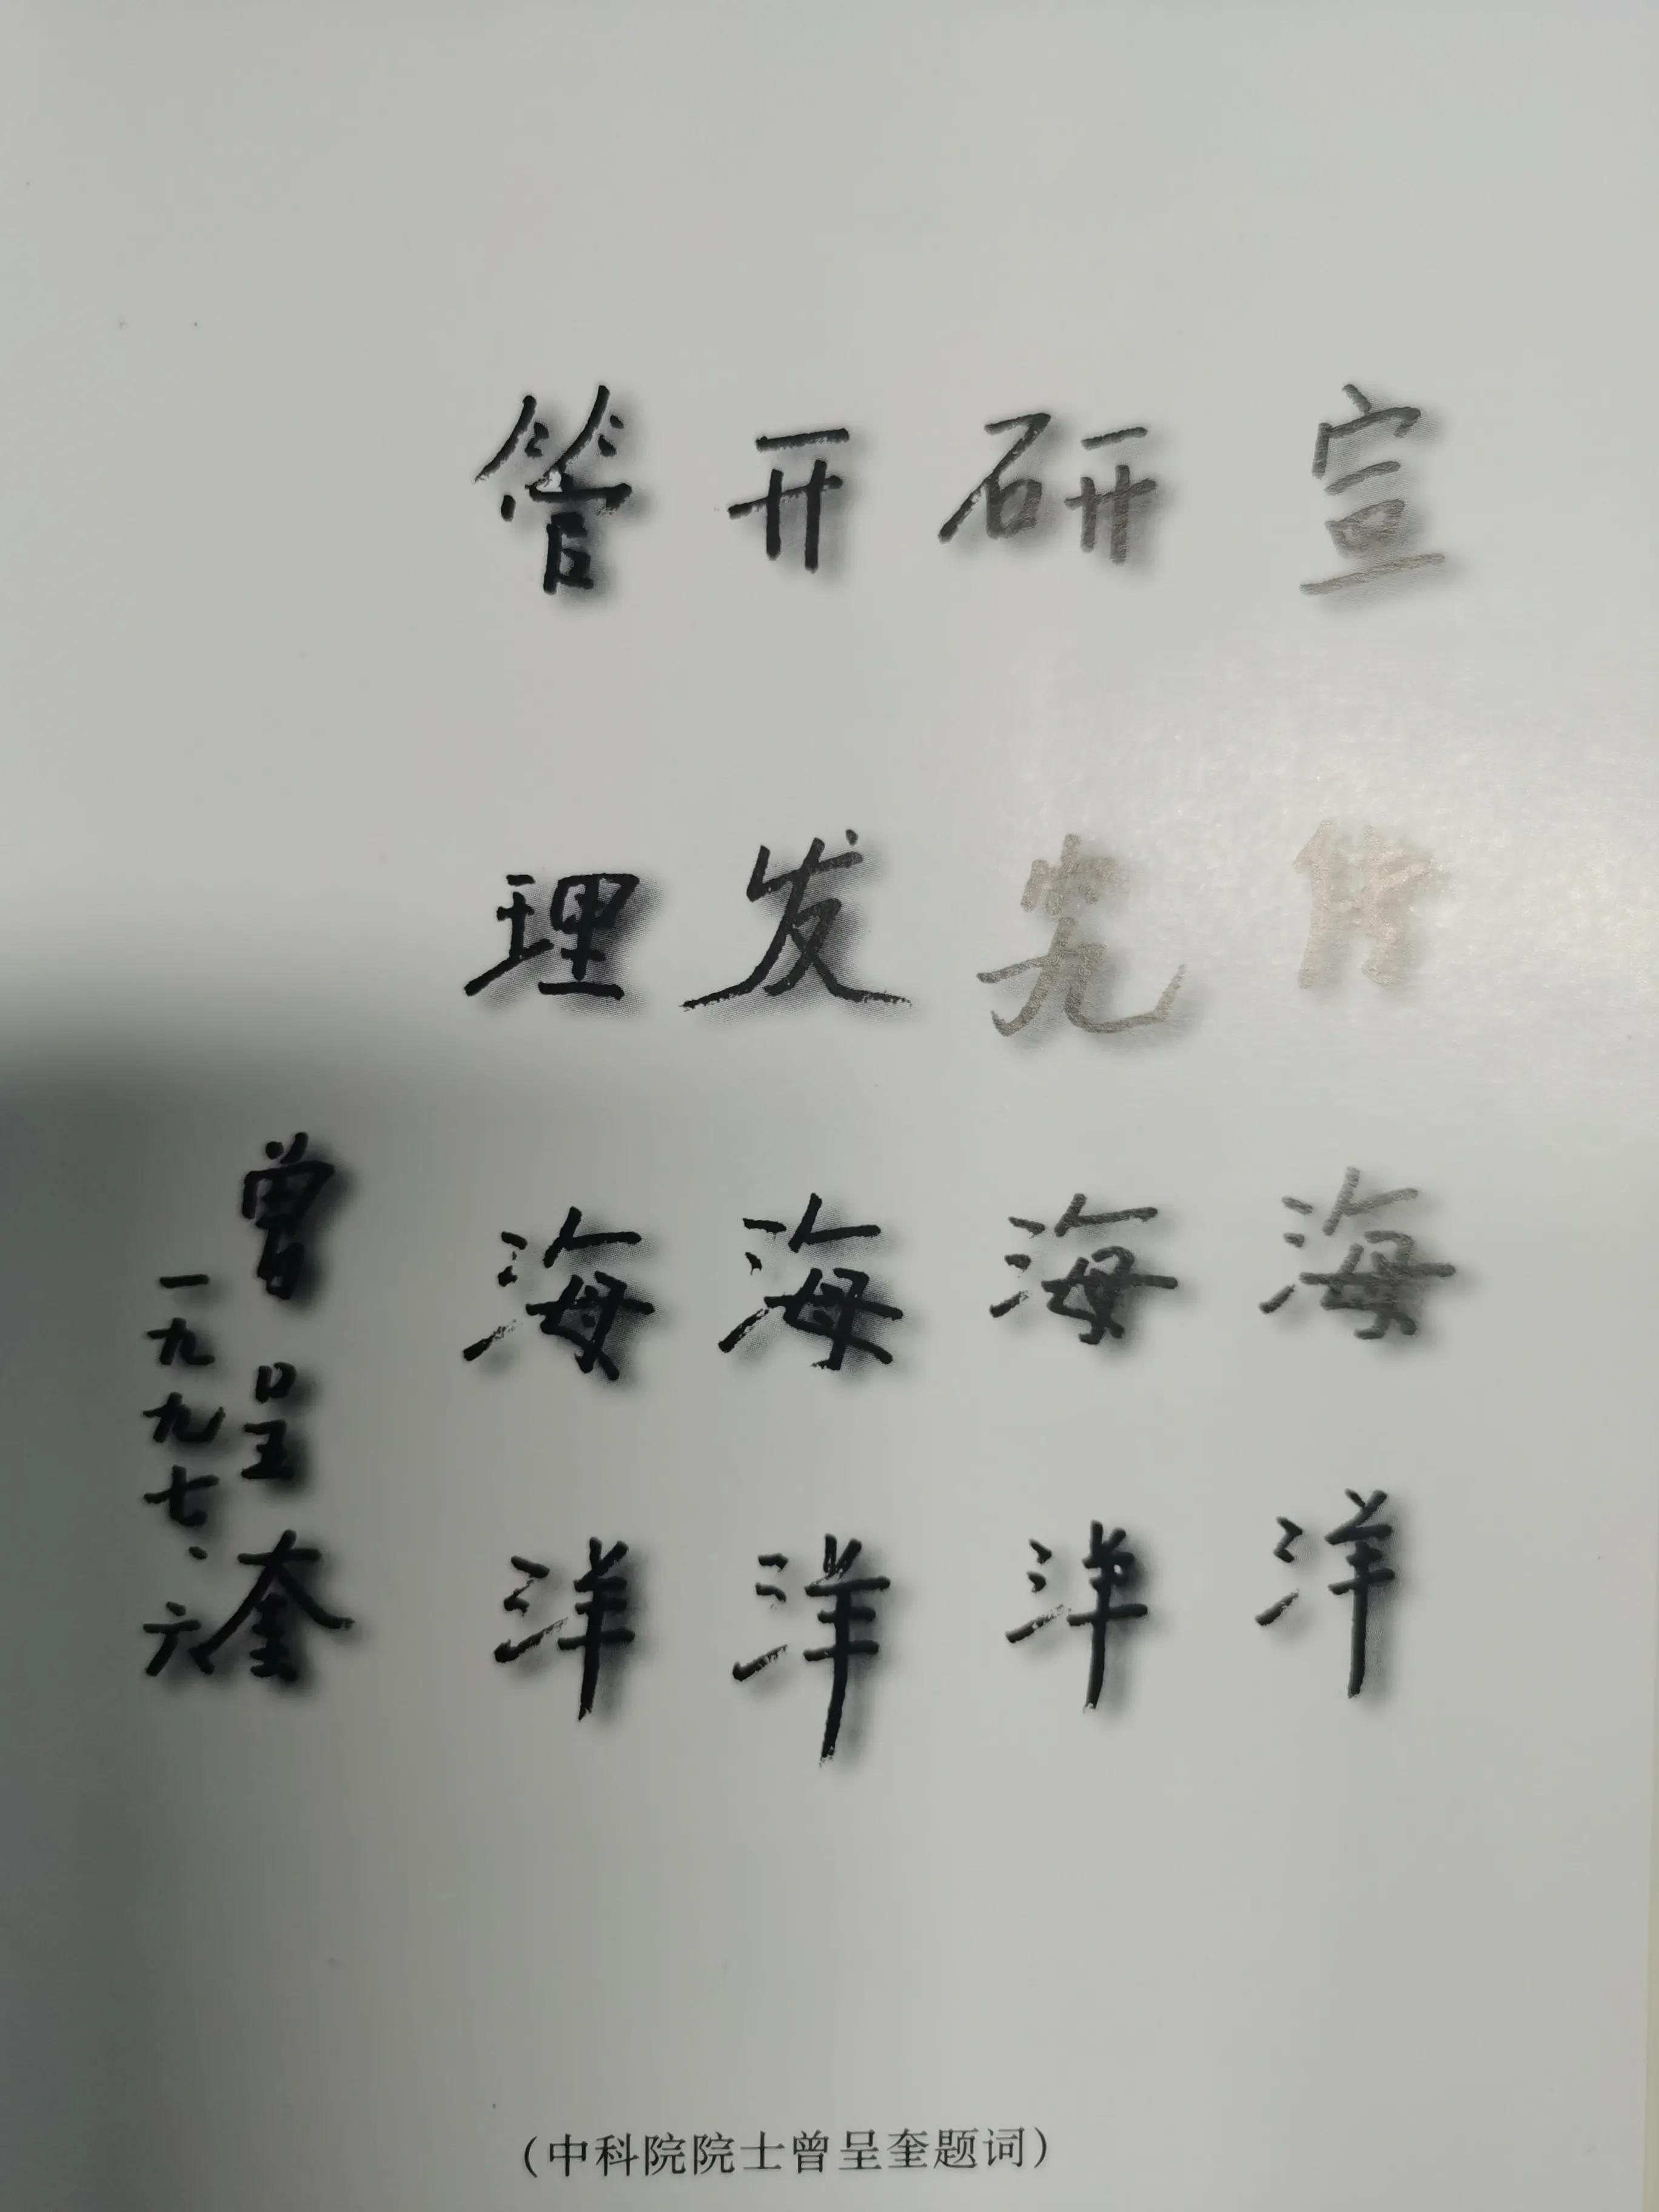 宣传海洋
研究海洋
开发海洋
管理海洋
曾呈奎
一九九七、六
(中科院院士曾呈奎题词)